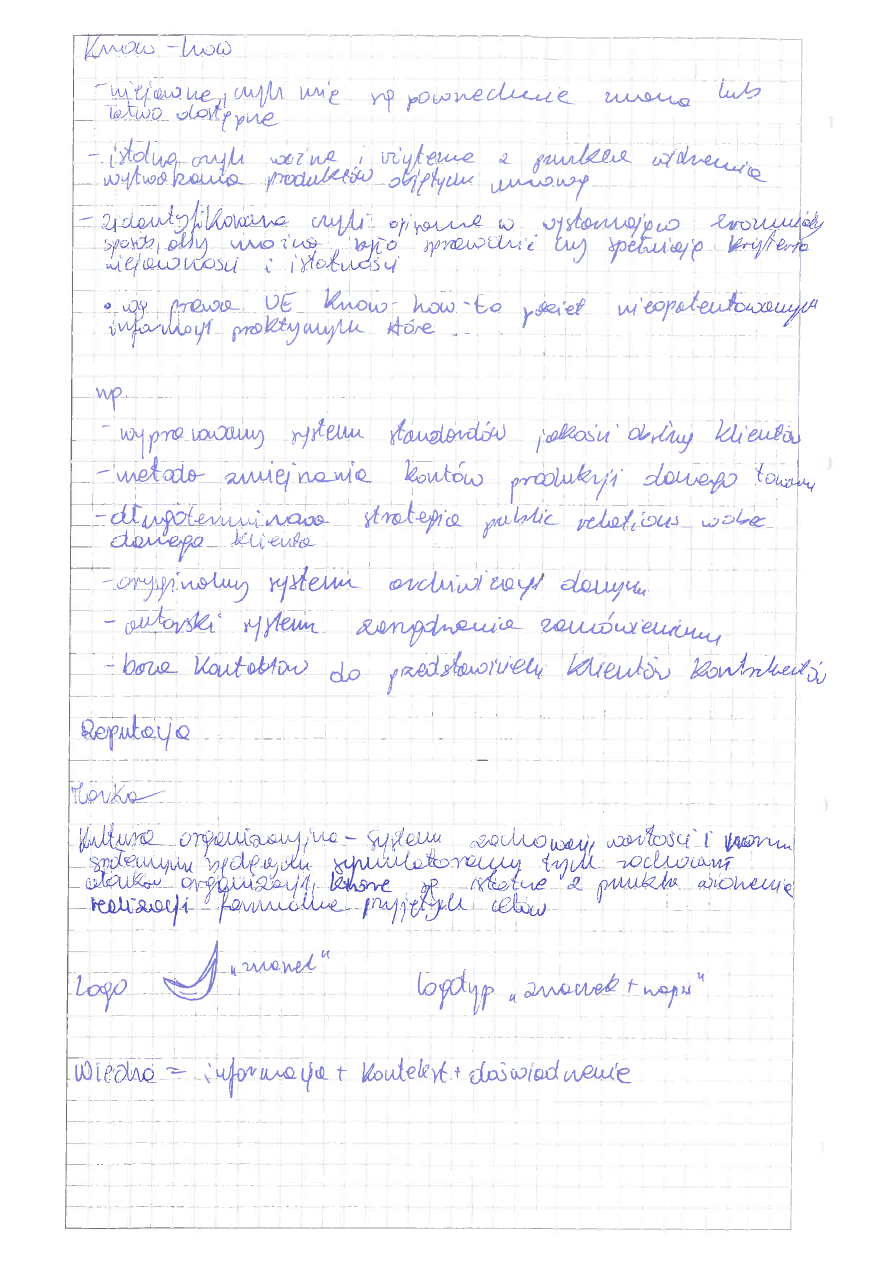 Know-how
- niejawne, czyli nie są powszechnie znane lub
łatwo dostępne
- istotne czyli ważne i użyteczne z punktu widzenia
wytwarzania produktów objętych umową
- zidentyfikowane czyli opisane w wystarczająco zrozumiały
sposób, aby można było sprawdzić czy spełniają kryteria
niejawności i istotności
• wg prawa UE know-how - to pakiet nieopatentowanych
informacji praktycznych które ...
np.
- wypracowany system standardów jakości obsługi klientów
- metoda zmniejszania kosztów produkcji danego towaru
- długoterminowa strategia public relations wobec
danego klienta
- oryginalny system archiwizacji danych
- autorski system zarządzania zamówieniami
- baza kontaktów do przedstawicieli klientów kontrahentów
Reputacja
Marka
Kultura organizacyjna - system zachowań, wartości i norm
społecznych będących stymulatorami tych zachowań
członków organizacji, które są istotne z punktu widzenia
realizacji formalnie przyjętych celów
Logo „znaczek" logotyp „znaczek + napis"
Wiedza = informacja + kontekst + doświadczenie